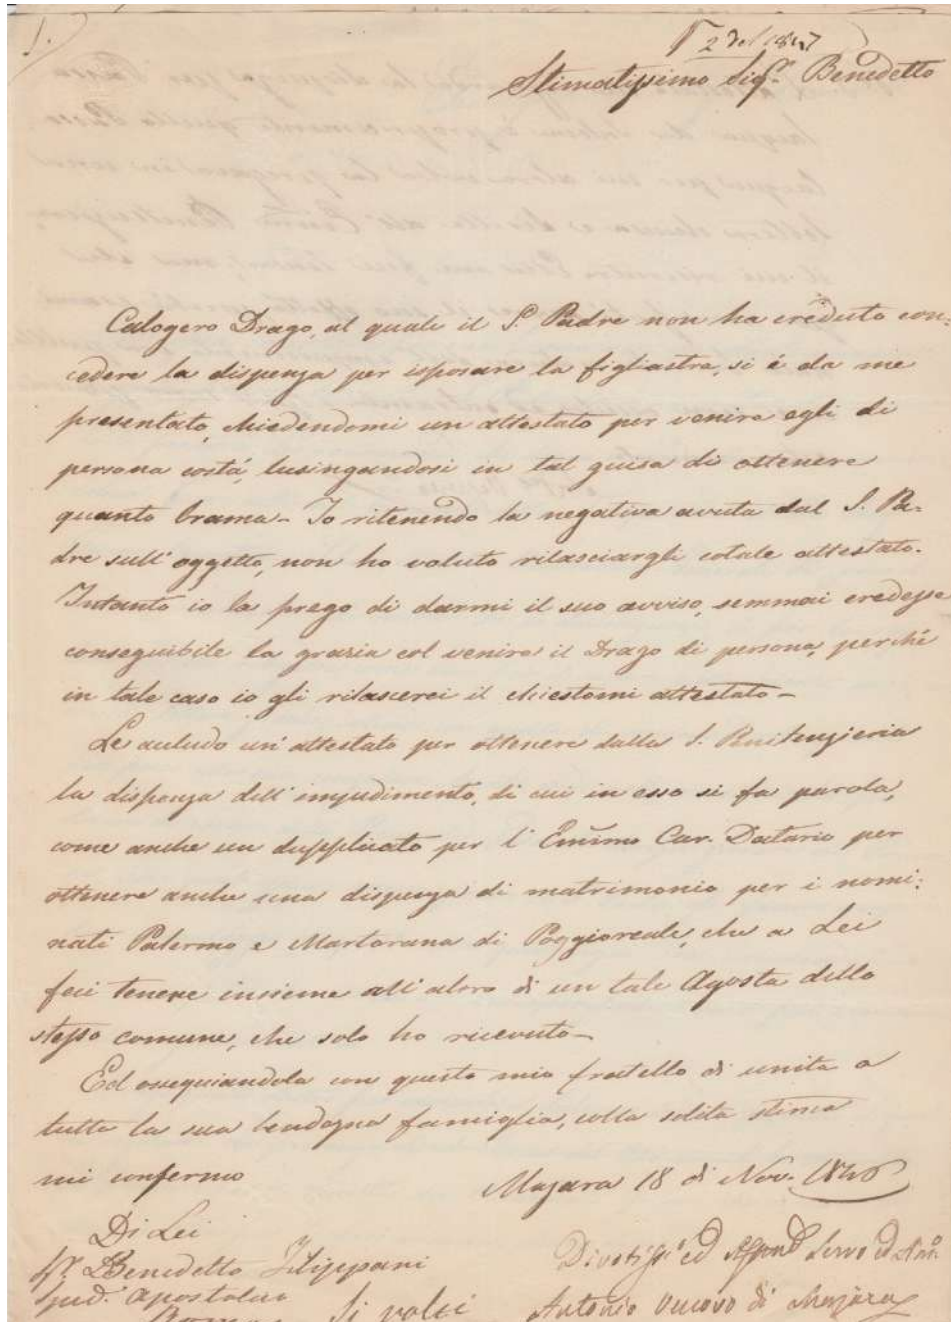 1.
2 del 1847
Stimatissimo Sigr. Benedetto
Calogero Drago, al quale il S. Padre non ha creduto con-
cedere la dispenza per isposare la figliastra, si è da me
presentato, chiedendomi un attestato per venire egli di
persona costà, lusingandosi in tal guisa di ottenere
quanto brama - Io ritenendo la negativa avuta dal S. Pa-
dre sull'oggetto, non ho voluto rilasciargli cotale attestato.
Intanto io la prego di darmi il suo avviso, semmai credesse
conseguibile la grazia col venire il Drago di persona, perchè
in tale caso io gli rilascerei il chiestomi attestato -
Le accludo un'attestato per ottenere dalla S. Penitenzieria
la dispenza dell'impedimento, di cui in esso si fa parola,
come anche un dupplicato per l'Emimo Car. Datario per
ottenere anche una dispenza di matrimonio per i nomi-
nati Palermo e Martorana di Poggioreale, che a Lei
feci tenere insieme all'altro di un tale Agosta dello
stesso comune, che solo ho ricevuto -
Ed ossequiandola con questo mio fratello di unita a
tutta la sua bendegna famiglia, colla solita stima
mi confermo
Mazara 18 di Nov. 1846
Di Lei
Sr. D. Benedetto Filippani
Sped. Apostolico
Roma
Si volti
Divotisso ed Affmo Servo ed
Antonio Vescovo di Mazara